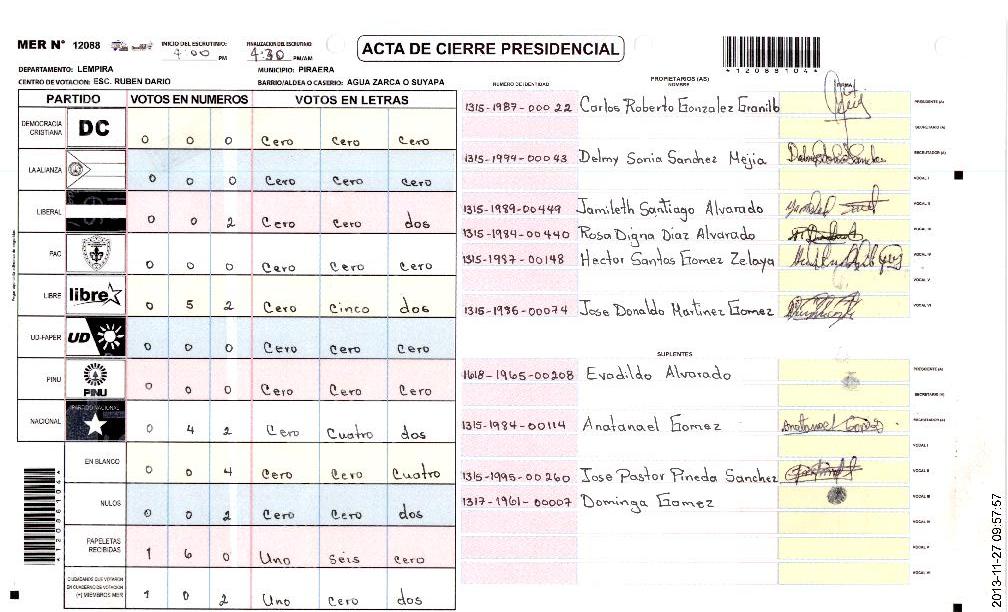 MER N° 12088 INICIO DEL ESCRUTINIO: 4:00 PM FINALIZACION DEL ESCRUTINIO 4:30 PM/AM
ACTA DE CIERRE PRESIDENCIAL
*12088104*
DEPARTAMENTO: LEMPIRA MUNICIPIO: PIRAERA
CENTRO DE VOTACION: ESC. RUBEN DARIO BARRIO/ALDEA O CASERIO: AGUA ZARCA O SUYAPA
PARTIDO VOTOS EN NUMEROS VOTOS EN LETRAS
DEMOCRACIA CRISTIANA DC 0 0 0 Cero Cero Cero
LA ALIANZA 0 0 0 Cero Cero Cero
LIBERAL 0 0 2 Cero Cero dos
PAC 0 0 0 Cero Cero Cero
LIBRE libre 0 5 2 Cero Cinco dos
UD-FAPER UD 0 0 0 Cero Cero Cero
PINU PINU 0 0 0 Cero Cero Cero
NACIONAL PARTIDO NACIONAL 0 4 2 Cero Cuatro dos
EN BLANCO 0 0 4 Cero Cero Cuatro
NULOS 0 0 2 Cero Cero dos
PAPELETAS RECIBIDAS 1 6 0 Uno seis cero
CIUDADANOS QUE VOTARON
EN CUADERNO DE VOTACION
(+) MIEMBROS MER 1 0 2 Uno Cero dos
*12088104*
NUMERO DE IDENTIDAD PROPIETARIOS (AS) NOMBRE FIRMA
1315-1987-00022 Carlos Roberto Gonzalez Granillo PRESIDENTE (A)
SECRETARIO (A)
1315-1994-00043 Delmy Sonia Sanchez Mejia ESCRUTADOR (A)
VOCAL I
1315-1989-00449 Jamileth Santiago Alvarado VOCAL II
1315-1984-00440 Rosa Digna Diaz Alvarado VOCAL III
1315-1987-00148 Hector Santos Gomez Zelaya VOCAL IV
VOCAL V
1315-1986-00074 Jose Donaldo Martinez Gomez VOCAL VI
SUPLENTES
1618-1965-00208 Evadildo Alvarado PRESIDENTE (A)
SECRETARIO (A)
1315-1984-00114 Anatanael Gomez ESCRUTADOR (A)
VOCAL I
1315-1995-00260 Jose Pastor Pineda Sanchez VOCAL II
1317-1961-00007 Dominga Gomez VOCAL III
VOCAL IV
VOCAL V
VOCAL VI
2013-11-27 09:57:57